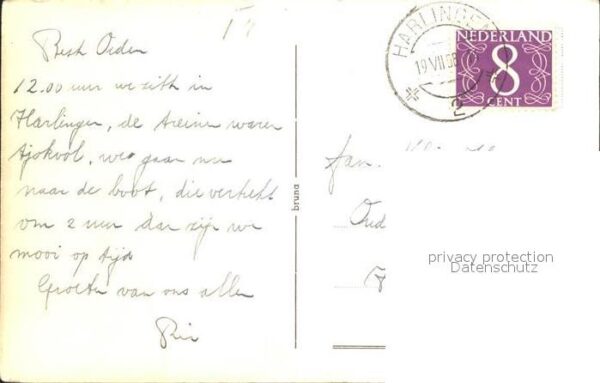 Besh Orden
12.00 uur we zitten in
Harlingen, de treinen waren
tjokvol, we gaan nu
naar de boot, die vertrekt
om 2 uur dan zijn we
mooi op tijd
Groeten van ons allen
Rie
bruna
HARLINGEN
19 VII 58
2
NEDERLAND
8
CENT
Fam.
privacy protection
Datenschutz